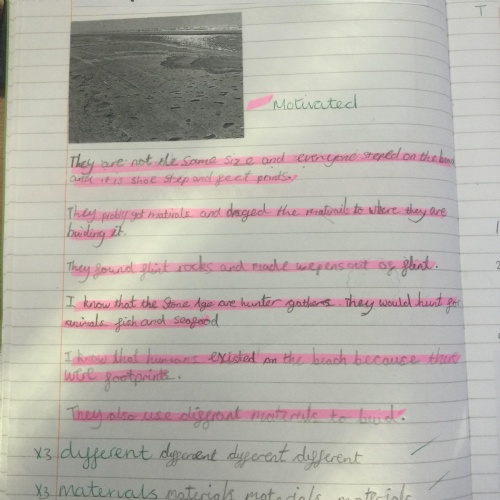 T
Motivated
They are not the same size and everyone steped on the
and it is shoe step and feet prints.
They probly got matirials and draged the matirials to where they are
building it.
They found flint rocks and made wepens out of flint.
I know that the Stone Age are hunter gathers. They would hunt for
animals fish and seafood
I know that humans existed on the beach because there
were footprints.
They also use diffrant materials to build.
x3 different different different different
x3 materials materials materials materials